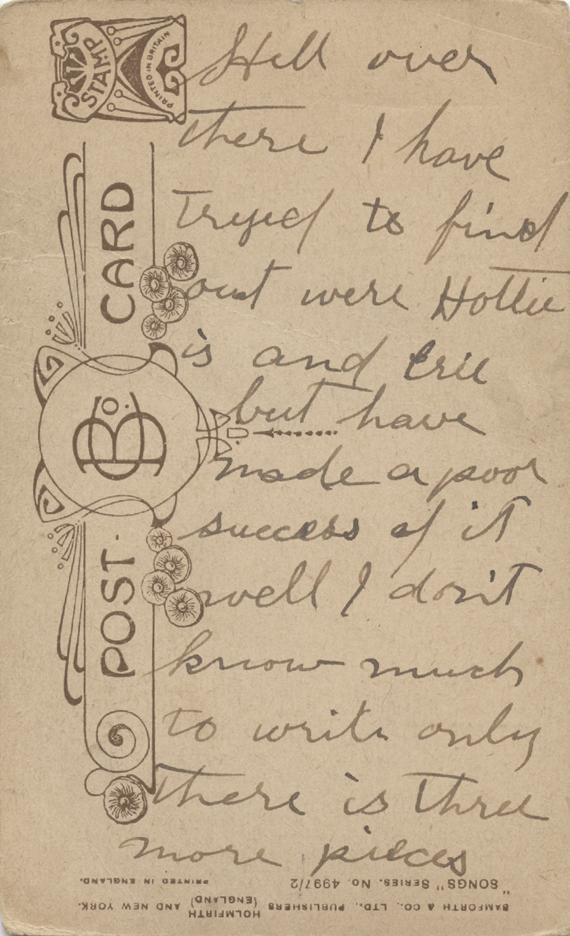 STAMP
PRINTED IN BRITAIN
POST CARD
B & Co.
Still over
there I have
tryed to find
out were Hottie
is and Eric
but have
made a poor
success of it
well I don't
know much
to write only
there is three
more pieces
"SONGS" SERIES. No. 4997/2
PRINTED IN ENGLAND.
BAMFORTH & CO., LTD., PUBLISHERS HOLMFIRTH (ENGLAND) AND NEW YORK.